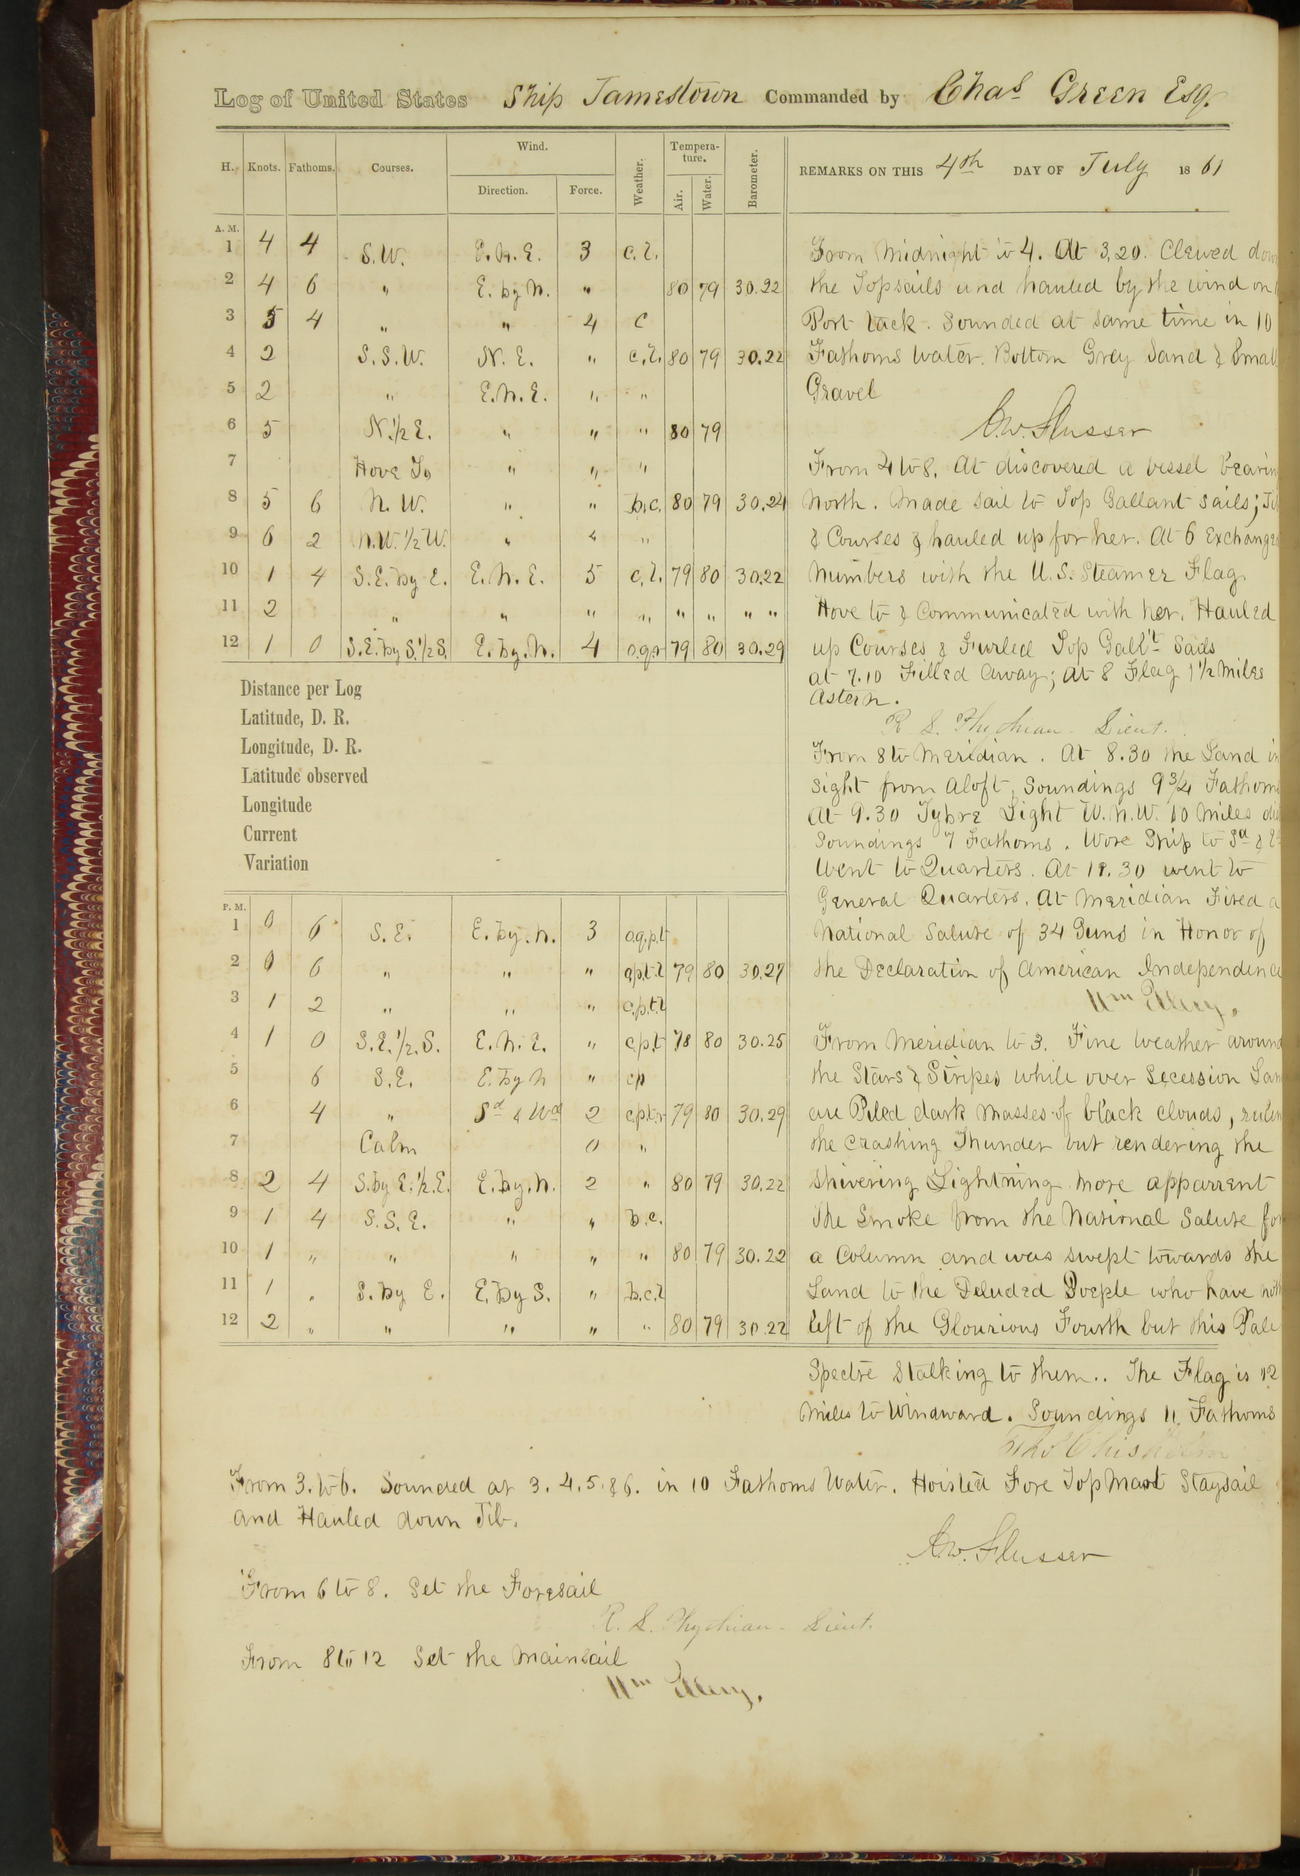 Log of United States Ship Jamestown Commanded by Chas Green Esq.
H. Knots. Fathoms. Courses. Wind. Direction. Force. Weather. Tempera-ture. Air. Water. Barometer.
REMARKS ON THIS 4th DAY OF July 1861
A. M.
1 4 4 S.W. E.N.E. 3 c.l.
2 4 6 " E. by N. " 80 79 30.22
3 5 4 " " 4 c
4 2 S.S.W. N.E. " c.l. 80 79 30.22
5 2 " E.N.E. " "
6 5 N.1/2 E. " " " 80 79
7 Hove To " " "
8 5 6 N.W. " " b.c. 80 79 30.24
9 6 2 N.W.1/2 W. " " "
10 1 4 S.E. by E. E.N.E. 5 c.l. 79 80 30.22
11 2 " " " " " " " "
12 1 0 S.E. by S.1/2 S. E. by N. 4 o.q.r 79 80 30.29
Distance per Log
Latitude, D. R.
Longitude, D. R.
Latitude observed
Longitude
Current
Variation
P. M.
1 0 6 S.E. E. by N. 3 o.q.p.t
2 0 6 " " " q.p.t.l 79 80 30.27
3 1 2 " " " c.p.t.l
4 1 0 S.E.1/2 S. E.N.E. " c.p.t 78 80 30.25
5 6 S.E. E. by N " cp
6 4 " Sd & Wd 2 c.p.t.r 79 80 30.29
7 Calm 0 "
8 2 4 S. by E.1/2 E. E. by N. 2 " 80 79 30.22
9 1 4 S.S.E. " " b.c.
10 1 " " " " " 80 79 30.22
11 1 " S. by E. E. by S. " b.c.l
12 2 " " " " " 80 79 30.22
From Midnight to 4. At 3,20. Clewed down
the Topsails and hauled by the wind on
Port tack. Sounded at same time in 10
Fathoms water. Bottom Grey Sand & Small
Gravel
C.W. Flusser
From 4 to 8. At discovered a vessel bearin
North. Made sail to Top Gallant sails; Ji
& Courses & hauled up for her. At 6 Exchange
Numbers with the U.S. Steamer Flag
Hove to & communicated with her. Hauled
up Courses & Furled Top Gall't Sails
at 7.10 Filled Away; at 8 Flag 1 1/2 Miles
Astern.
R L. Phythian Lieut.
From 8 to Meridian. At 8.30 the Land in
sight from aloft, Soundings 9 3/4 Fathoms
At 9.30 Tybre Light W.N.W. 10 Miles dis
Soundings 7 Fathoms. Wore Ship to Sd & E
Went to Quarters. At 11.30 went to
General Quarters. At Meridian Fired a
National Salute of 34 Guns in Honor of
the Declaration of American Independence
Wm Ellery.
From Meridian to 3. Fine weather around
the Stars & Stripes while over Secession Lan
are Piled dark masses of black clouds,
the crashing Thunder but rendering the
shivering Lightning more apparrent
The Smoke from the National Salute for
a Column and was swept towards the
Land to the Deluded Poeple who have noth
left of the Glourious Fourth but this Pale
Spectre Stalking to them.. The Flag is 12
Miles to Windward. Soundings 11 Fathoms
Thos Chisholm
From 3. to 6. Sounded at 3. 4. 5. & 6. in 10 Fathoms Water. Hoisted Fore Top Mast Staysail
and Hauled down Jib.
C.W. Flusser
From 6 to 8. Set the Foresail
R. L. Phythian Lieut.
From 8 to 12 Set the Mainsail
Wm Ellery.